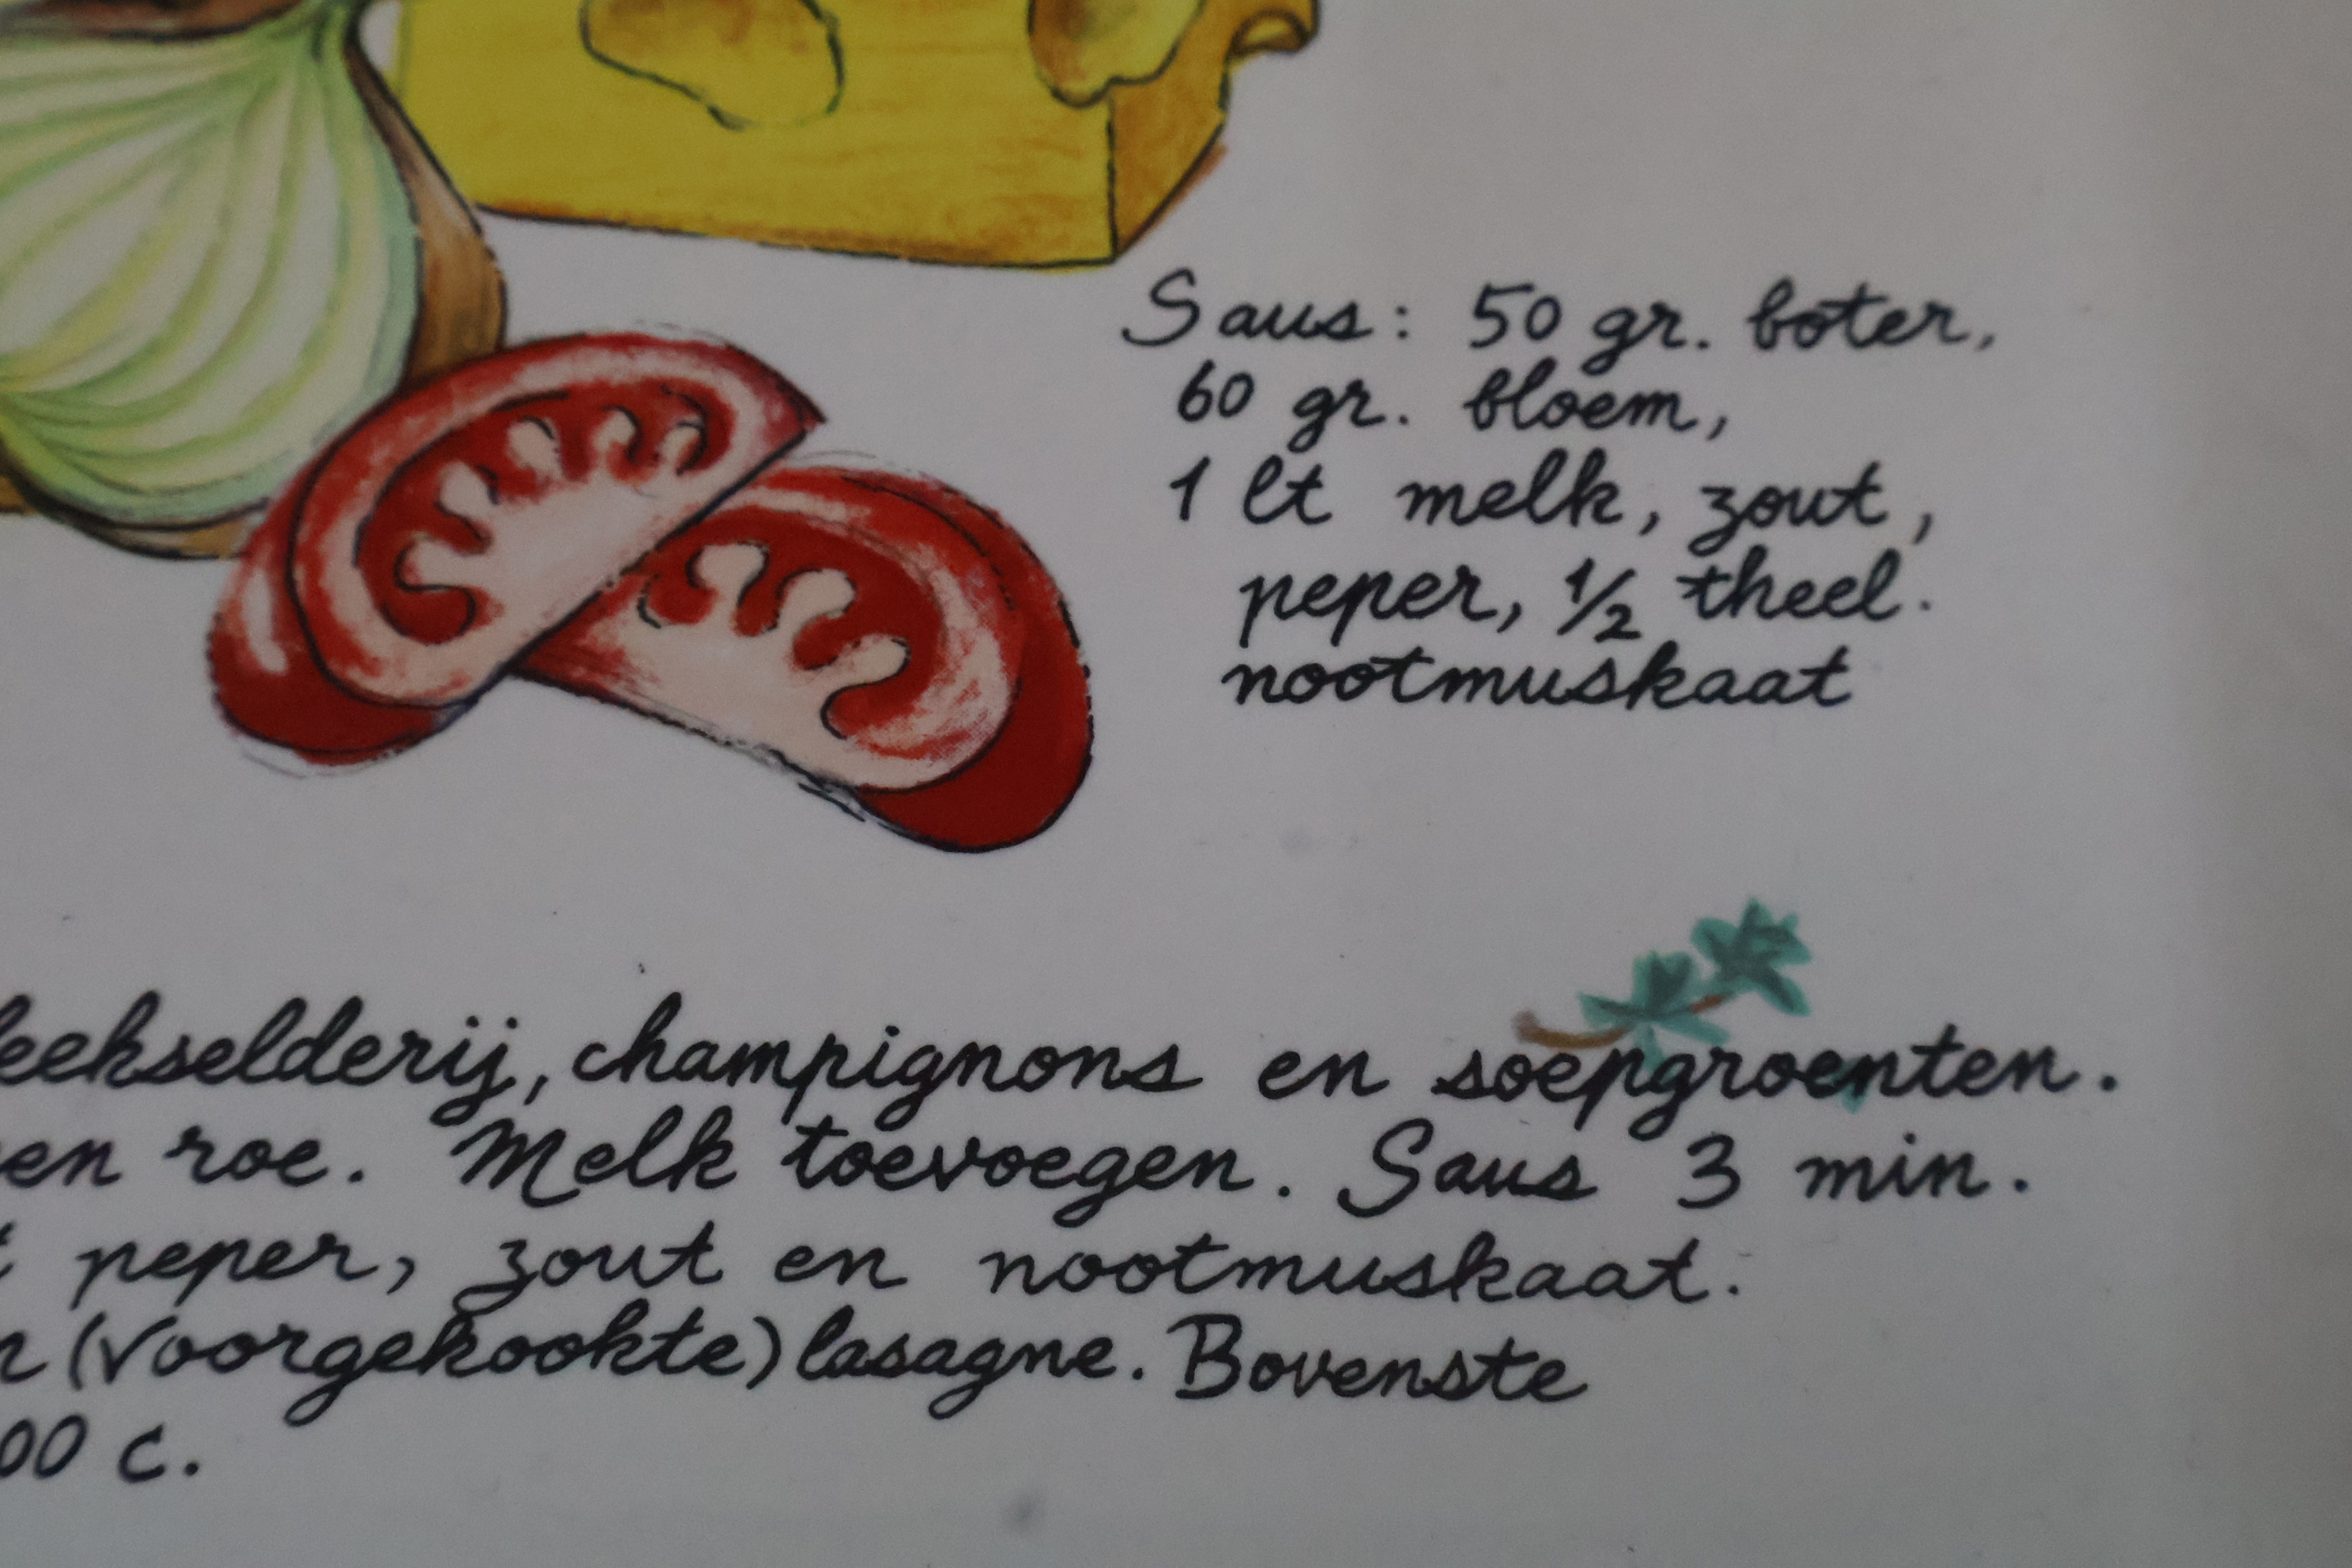 Saus: 50 gr. boter,
60 gr. bloem,
1 lt melk, zout,
peper, 1/2 theel.
nootmuskaat
leekselderij, champignons en soepgroenten.
en roe. Melk toevoegen. Saus 3 min.
t peper, zout en nootmuskaat.
n (voorgekookte) lasagne. Bovenste
00 c.